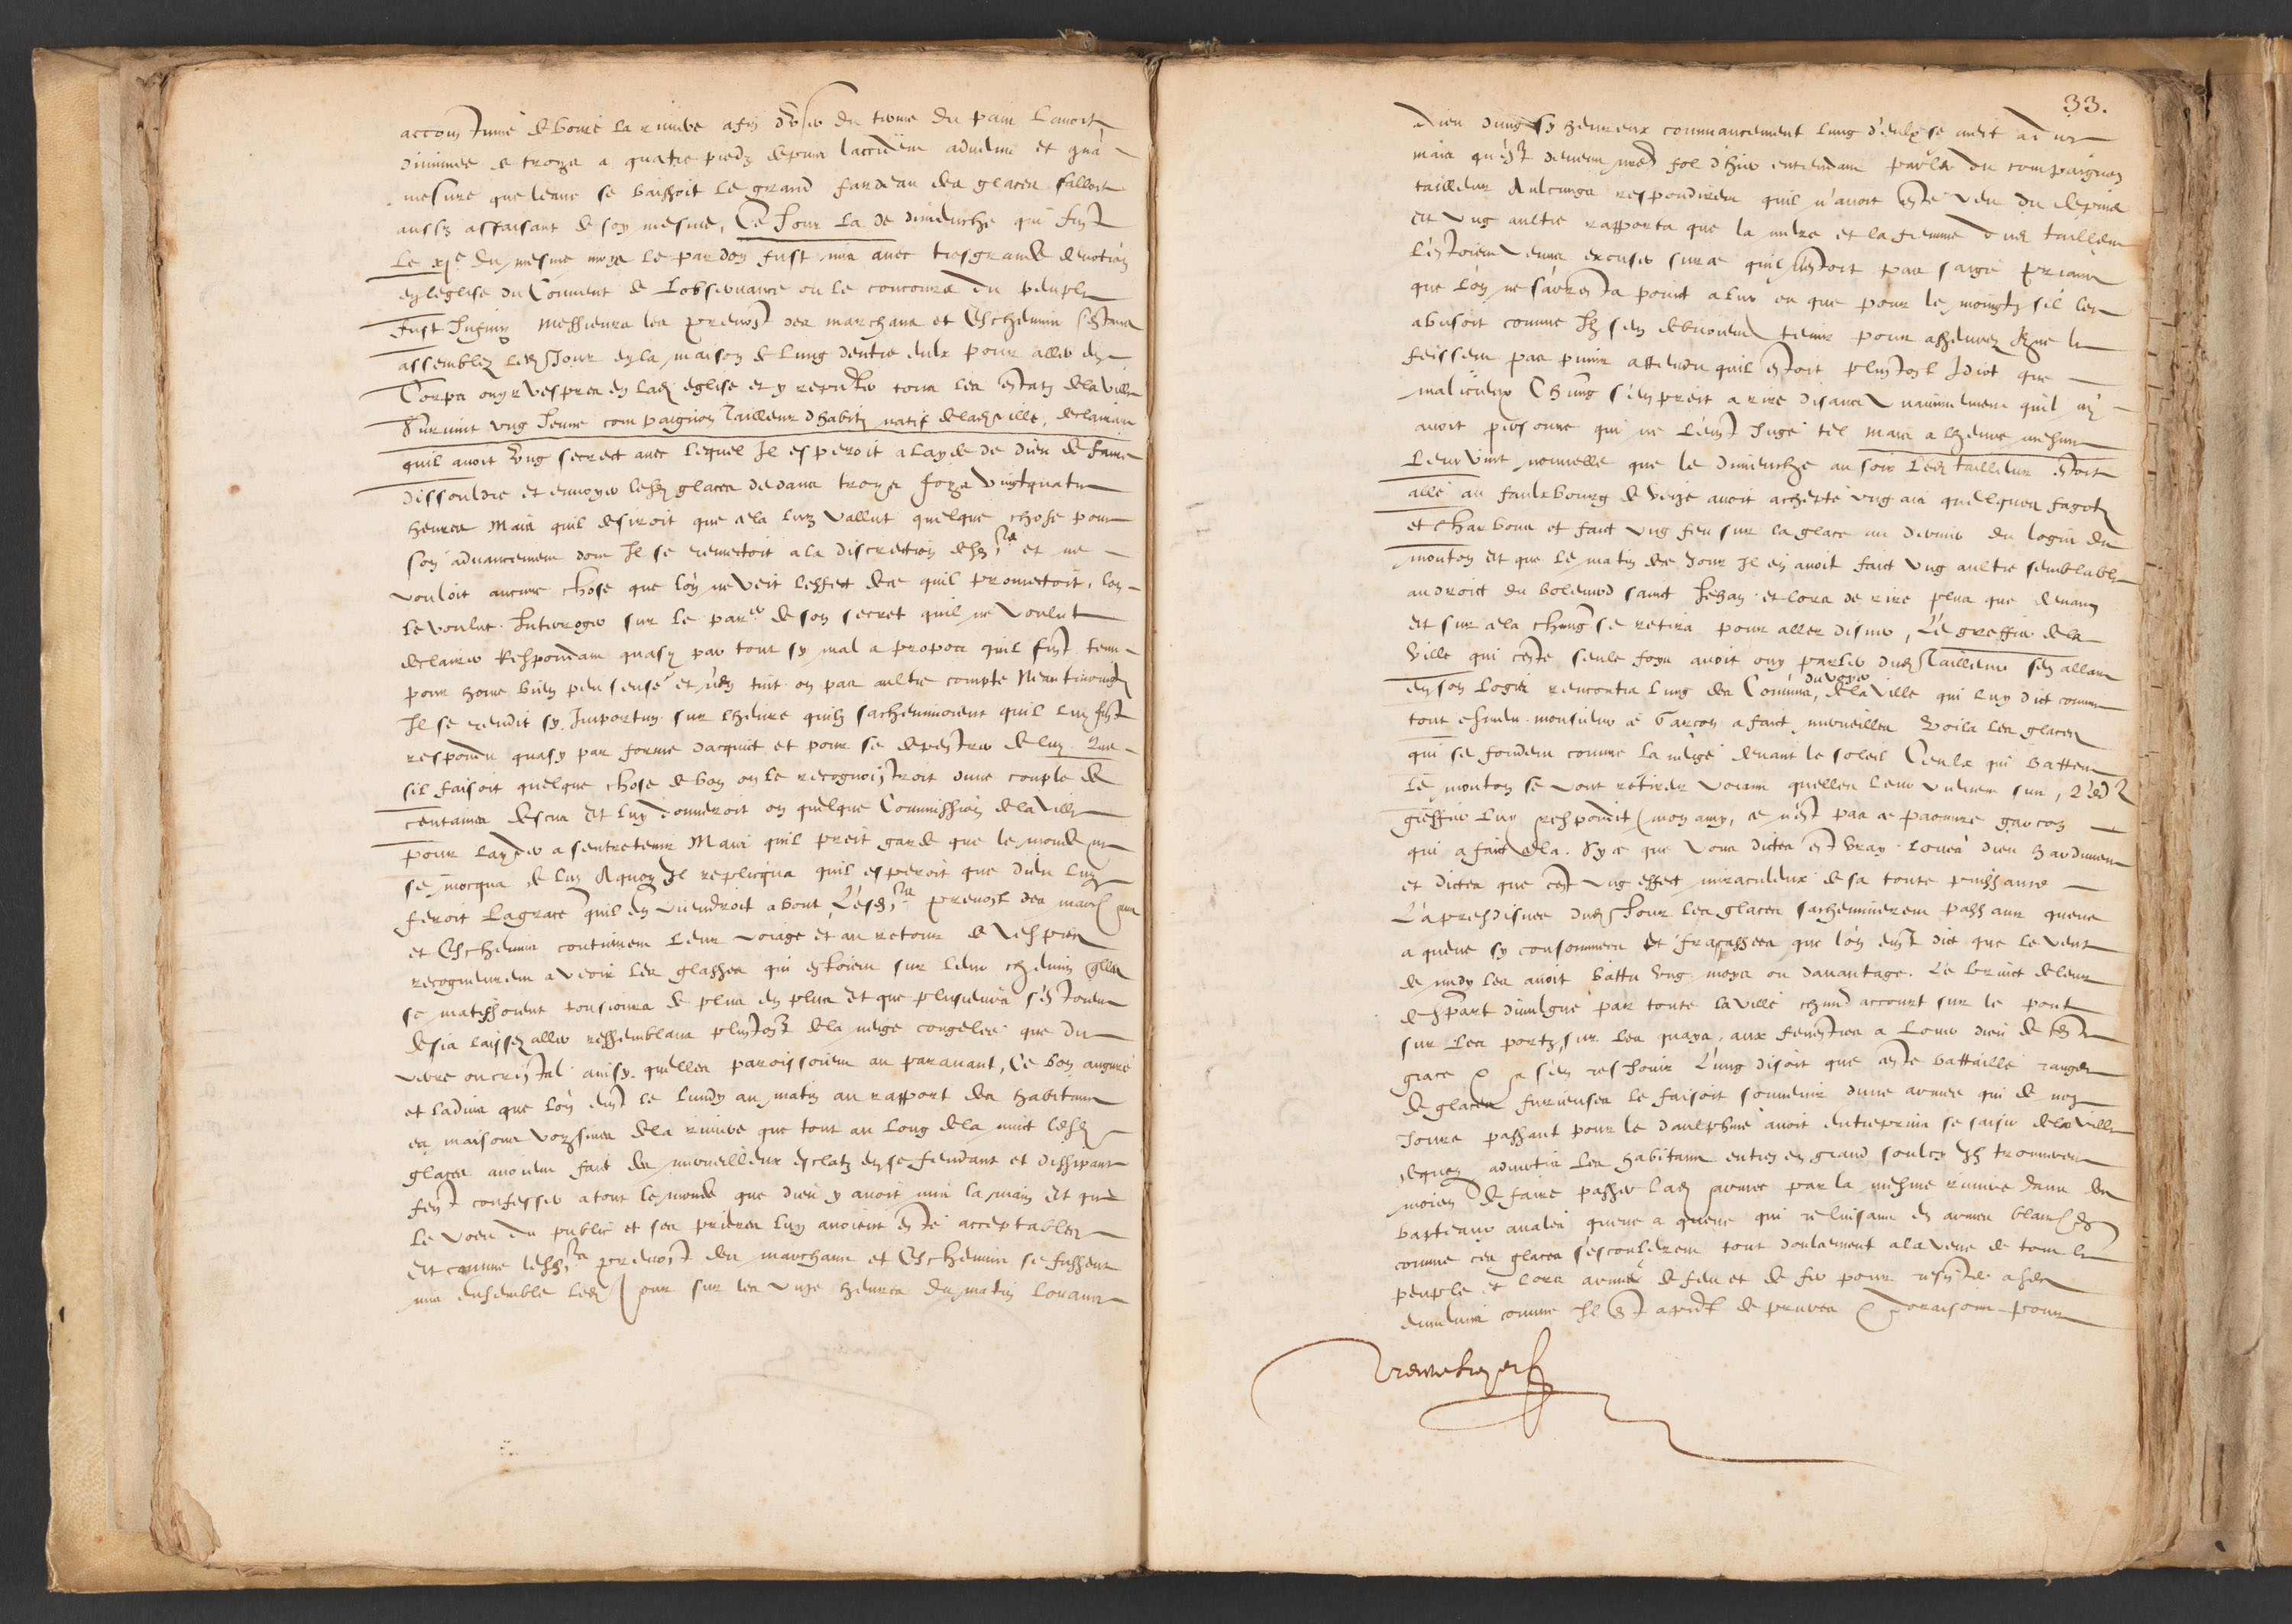 accoustumé de boire la riviere afin d'user du terme du pain l'avoit
diminuee de troys a quatre piedz depuis laccident advenu et qua
mesure que leaue se baissoit le grand fardeau des glaces salloit
aussy affaisant de soy mesme, Ce Jour la de dimenche qui fust
le xje du mesme moys le pardon fust mis avec tresgrande devotion
en leglise du Couvent de Lobservance ou le concours du peuple
fust Infiny Messieurs les prevost des marchans et Eschevins sestans
assemblez led Jour en la maison de lung dentre eulx pour aller en
Corps ouyr vespres en lad eglise et y representer tous les estatz de la ville
Survint ung Jeune compaignon Tailleur dhabitz natif de lad ville, declarant
quil avoit ung secrect avec lequel Il esperoit a layde de dieu de faire
dissouldre et envoyer lesd glaces dedans troys foys vingtquatre
heures Mais quil desiroit que cela luy vallut quelque chose pour
son advancement dont Il se remectoit a la discretion desd srs et ne
vouloit aucune chose que lon ne veit leffect de ce quil promectoit, lon
le voulut Interroger sur le par.er de son secret quil ne voulut
declairer Respondant quasy par tout sy mal a propos quil fust tenu
pour home bien peu sensé et n'en tint on pas aultre compte Neantmoings
Il se rendit sy Importun sur lheure quilz sacheminoient quil luy fust
respondu quasy par forme dacquict et pour se depestrer de luy Que
sil faisoit quelque chose de bon on le recognoistroit dune couple de
centaines descus Et luy donneroit on quelque Commission de la ville
pour layder a sentretenir Mais quil preit garde que le monde ne
se mocqua de luy A quoy Il replicqua quil esperoit que dieu luy
feroit la grace quil en viendroit a bout, Lesd srs prevost des marchans
et Eschevins continuent leur voiage et au retour de vespres
recogneurent a veoir les glasses qui estoient sur leur chemin qlles
se matissoient tousiours de plus en plus Et que plusieurs s'estoient
desia laissez aller ressemblans plustost de la neige congelée que du
verre ou cristal ainsy quelles paroissoient au paravant, Ce bon augure
et ladvis que lon eust le lundy au matin au rapport des habitans
es maisons voysines de la riviere que tout au long de la nuict lesd
glaces avoient faict des merveilleux esclatz en se fendant et dissipant
feyt confesser a tout le monde que dieu y avoit mis la main Et que
le voeu du public et ses prieres luy avoient esté acceptables
Et comme lesd srs prevost des marchans et Eschevins se fussent
mis ensemble led Jour sur les unze heures du matin louans
33.
Dieu dung sy heureux commancement lung d'eulx se meit a dire
mais qu'est devenu nred fol d'hier entendant parler du compaignon
tailleur Aulcungs respondirent quil n'avoit esté veu du depuis
Et ung aultre rapporta que la mere et la femme dud tailleur
l'estoient venus excuser sur ce quil n'estoit pas saige priant
que lon ne s'arresta point a luy ou que pour le moingtz sil les
abusoit comme Ilz sen debvoient tenir pour asseurez Ilz ne le
feissent pas punir attendu quil estoit plustost Idiot que
malicieux Chung s'en preit a rire disant vnanimement quil ny
avoit personne qui ne l'eust Jugé tel Mais a lheure mesme
leur vint nouvelle que le dimenche au soir led tailleur estoit
allé au faulxbourg de Veize avoit achepté ung ais quelques fagotz
et charbons et faict ung feu sur la glace au devant du logis du
mouton Et que le matin dece Jour Il en avoit faict ung aultre semblable
au droict du bolevard sainct Jehan et lors de rire plus que devant
Et sur cela chung se retira pour aller disner, Le greffier de la
Ville qui ceste seule foys avoit ouy parler dud Tailleur sen allant
en son logis rencontra lung des Commis du voyer de la ville qui luy dict comme
tout esmeu monsieur ce Garcon a faict merveilles Voila les glaces
qui se fondent comme la neige devant le soleil Ceulx qui battent
le mouton se vont retirer voiant quelles leur viennent sus, Led
greffier luy respondit mon amy, ce n'est pas ce paouvre garcon
qui a faict cela. Sy ce que vous dictes est vray louez dieu hardiment
et dictes que cest ung effect miraculeux de sa toute puissance
L'apresdisnee dud Jour les glaces sacheminerent passans queue
a queue sy consommees et fracassees que lon eust dict que le vent
de midy les avoit battu ung moys ou davantage. Le bruict de leur
despart divulgué par toute la ville chund accourt sur le pont
sur les portz, sur les quays, aux fenestres a louer dieu de ceste
grace & a s'en resJouir L'ung disoit que ceste battaille rangee
de glaces furieuses le faisoit souvenir dune armee qui de noz
Jours passant pour le daulphiné avoit entreprins se saisir de la ville
dequoy advertis les habitans entrez en grand soulcy Ilz trouverent
moien de faire passer lad armee par la mesme riviere dans des
basteaux avalez queue a queue qui reluisant en armes blanches
comme ces glaces s'escoulerent tout doulcement a la veue de tout le
peuple et lors armé de feu et de fer pour resister a ses
ennemis comme Il est apnt de prieres & doraisons pour